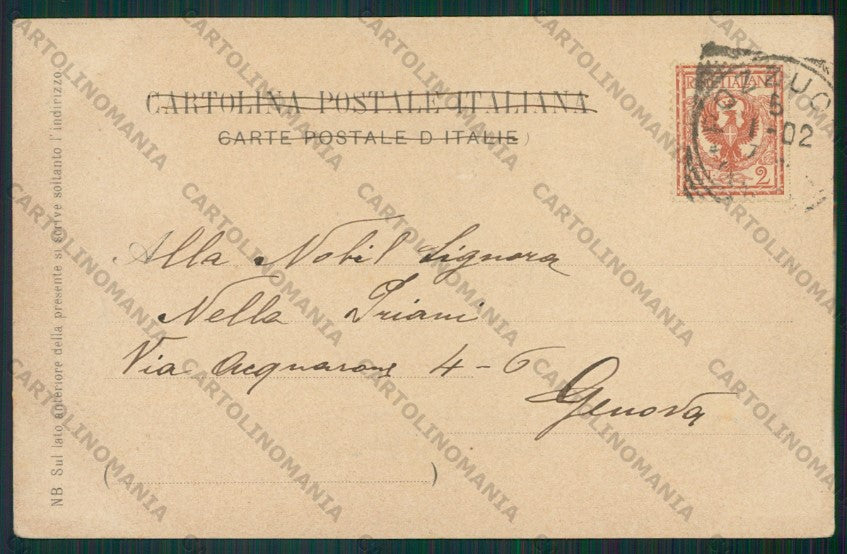 CARTOLINA POSTALE ITALIANA
CARTE POSTALE D ITALIE)
POSTE ITALIANE
2
5
1-02
Alla Nobil Signora
Nella Triani
Via Acquarone 4-6
Genova
( )
NB. Sul lato anteriore della presente si scrive soltanto l'indirizzo.
CARTOLINOMANIA